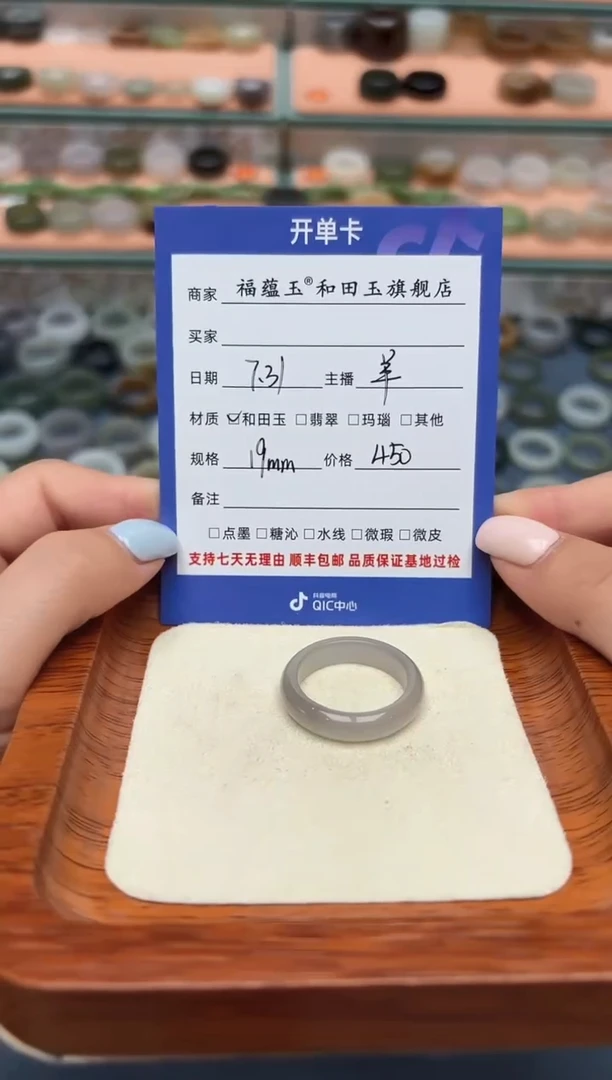 开单卡
商家 福蕴玉®和田玉旗舰店
买家
日期 7.31 主播 羊
材质 ☑和田玉 □翡翠 □玛瑙 □其他
规格 19mm 价格 450
备注
□点墨 □糖沁 □水线 □微瑕 □微皮
支持七天无理由 顺丰包邮 品质保证基地过检
抖音电商
QIC中心